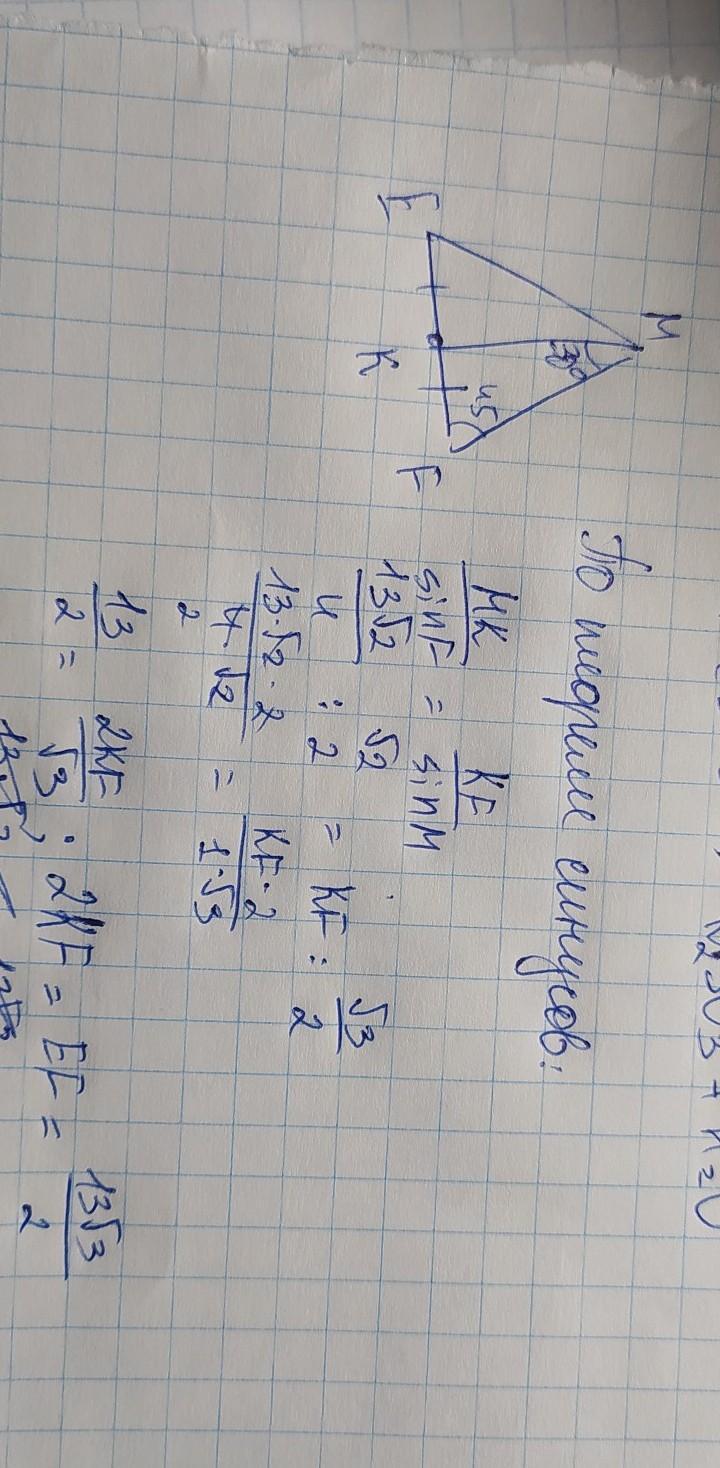 M
30°
45
E
K
F
По теореме синусов:
MK/sinF = KF/sinM
13√2/4 : √2/2 = KF : √3/2
13·√2·2/4·√2 = KF·2/1·√3
2
13/2 = 2KF/√3 ; 2KF = EF = 13√3/2